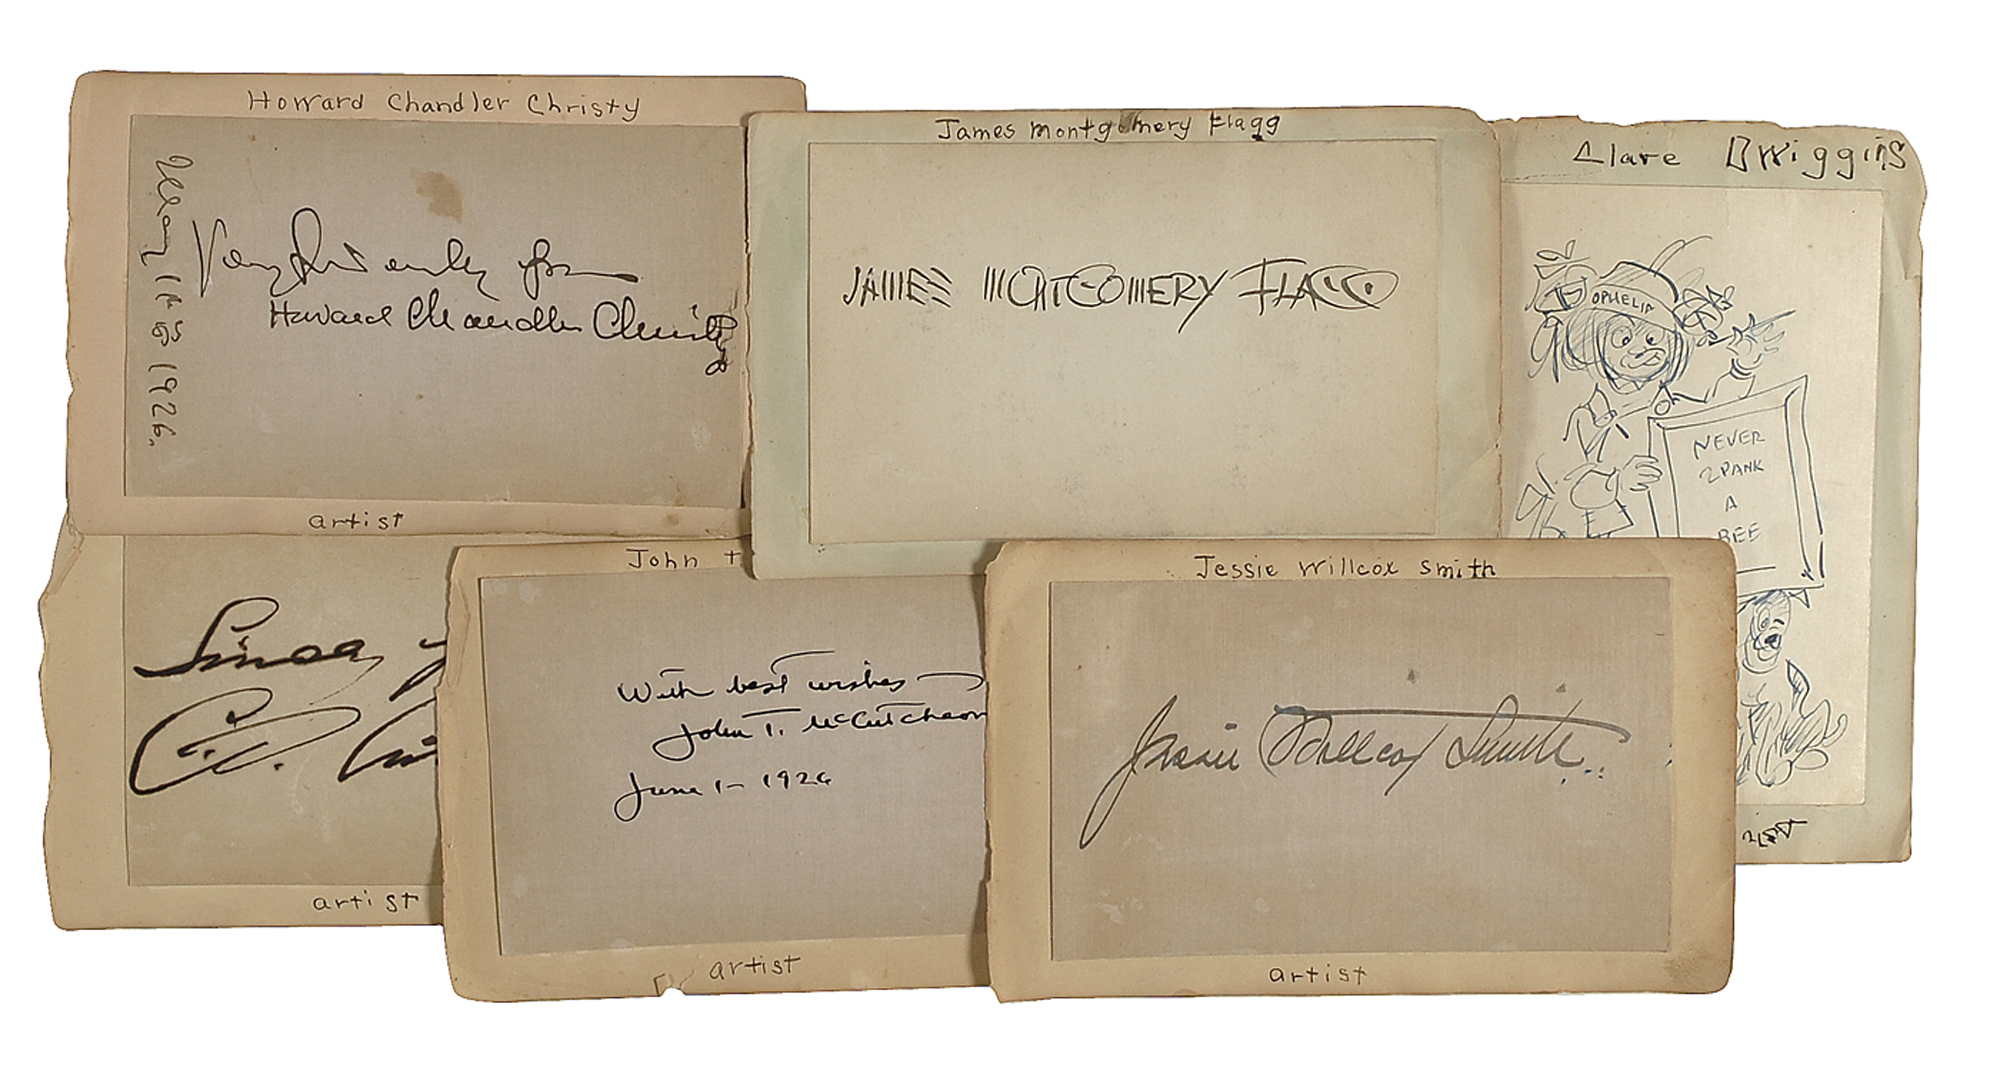 Howard Chandler Christy
May 18 1926.
Very Sincerely from
Howard Chandler Christy
artist
James Montgomery Flagg
JAMES MONTGOMERY FLAGG
Clare Dwiggins
OPHELIA
NEVER
SPANK
A
BEE
artist
John T
With best wishes
John T. McCutcheon
June 1- 1926
artist
Jessie Willcox Smith
Jessie Willcox Smith
artist